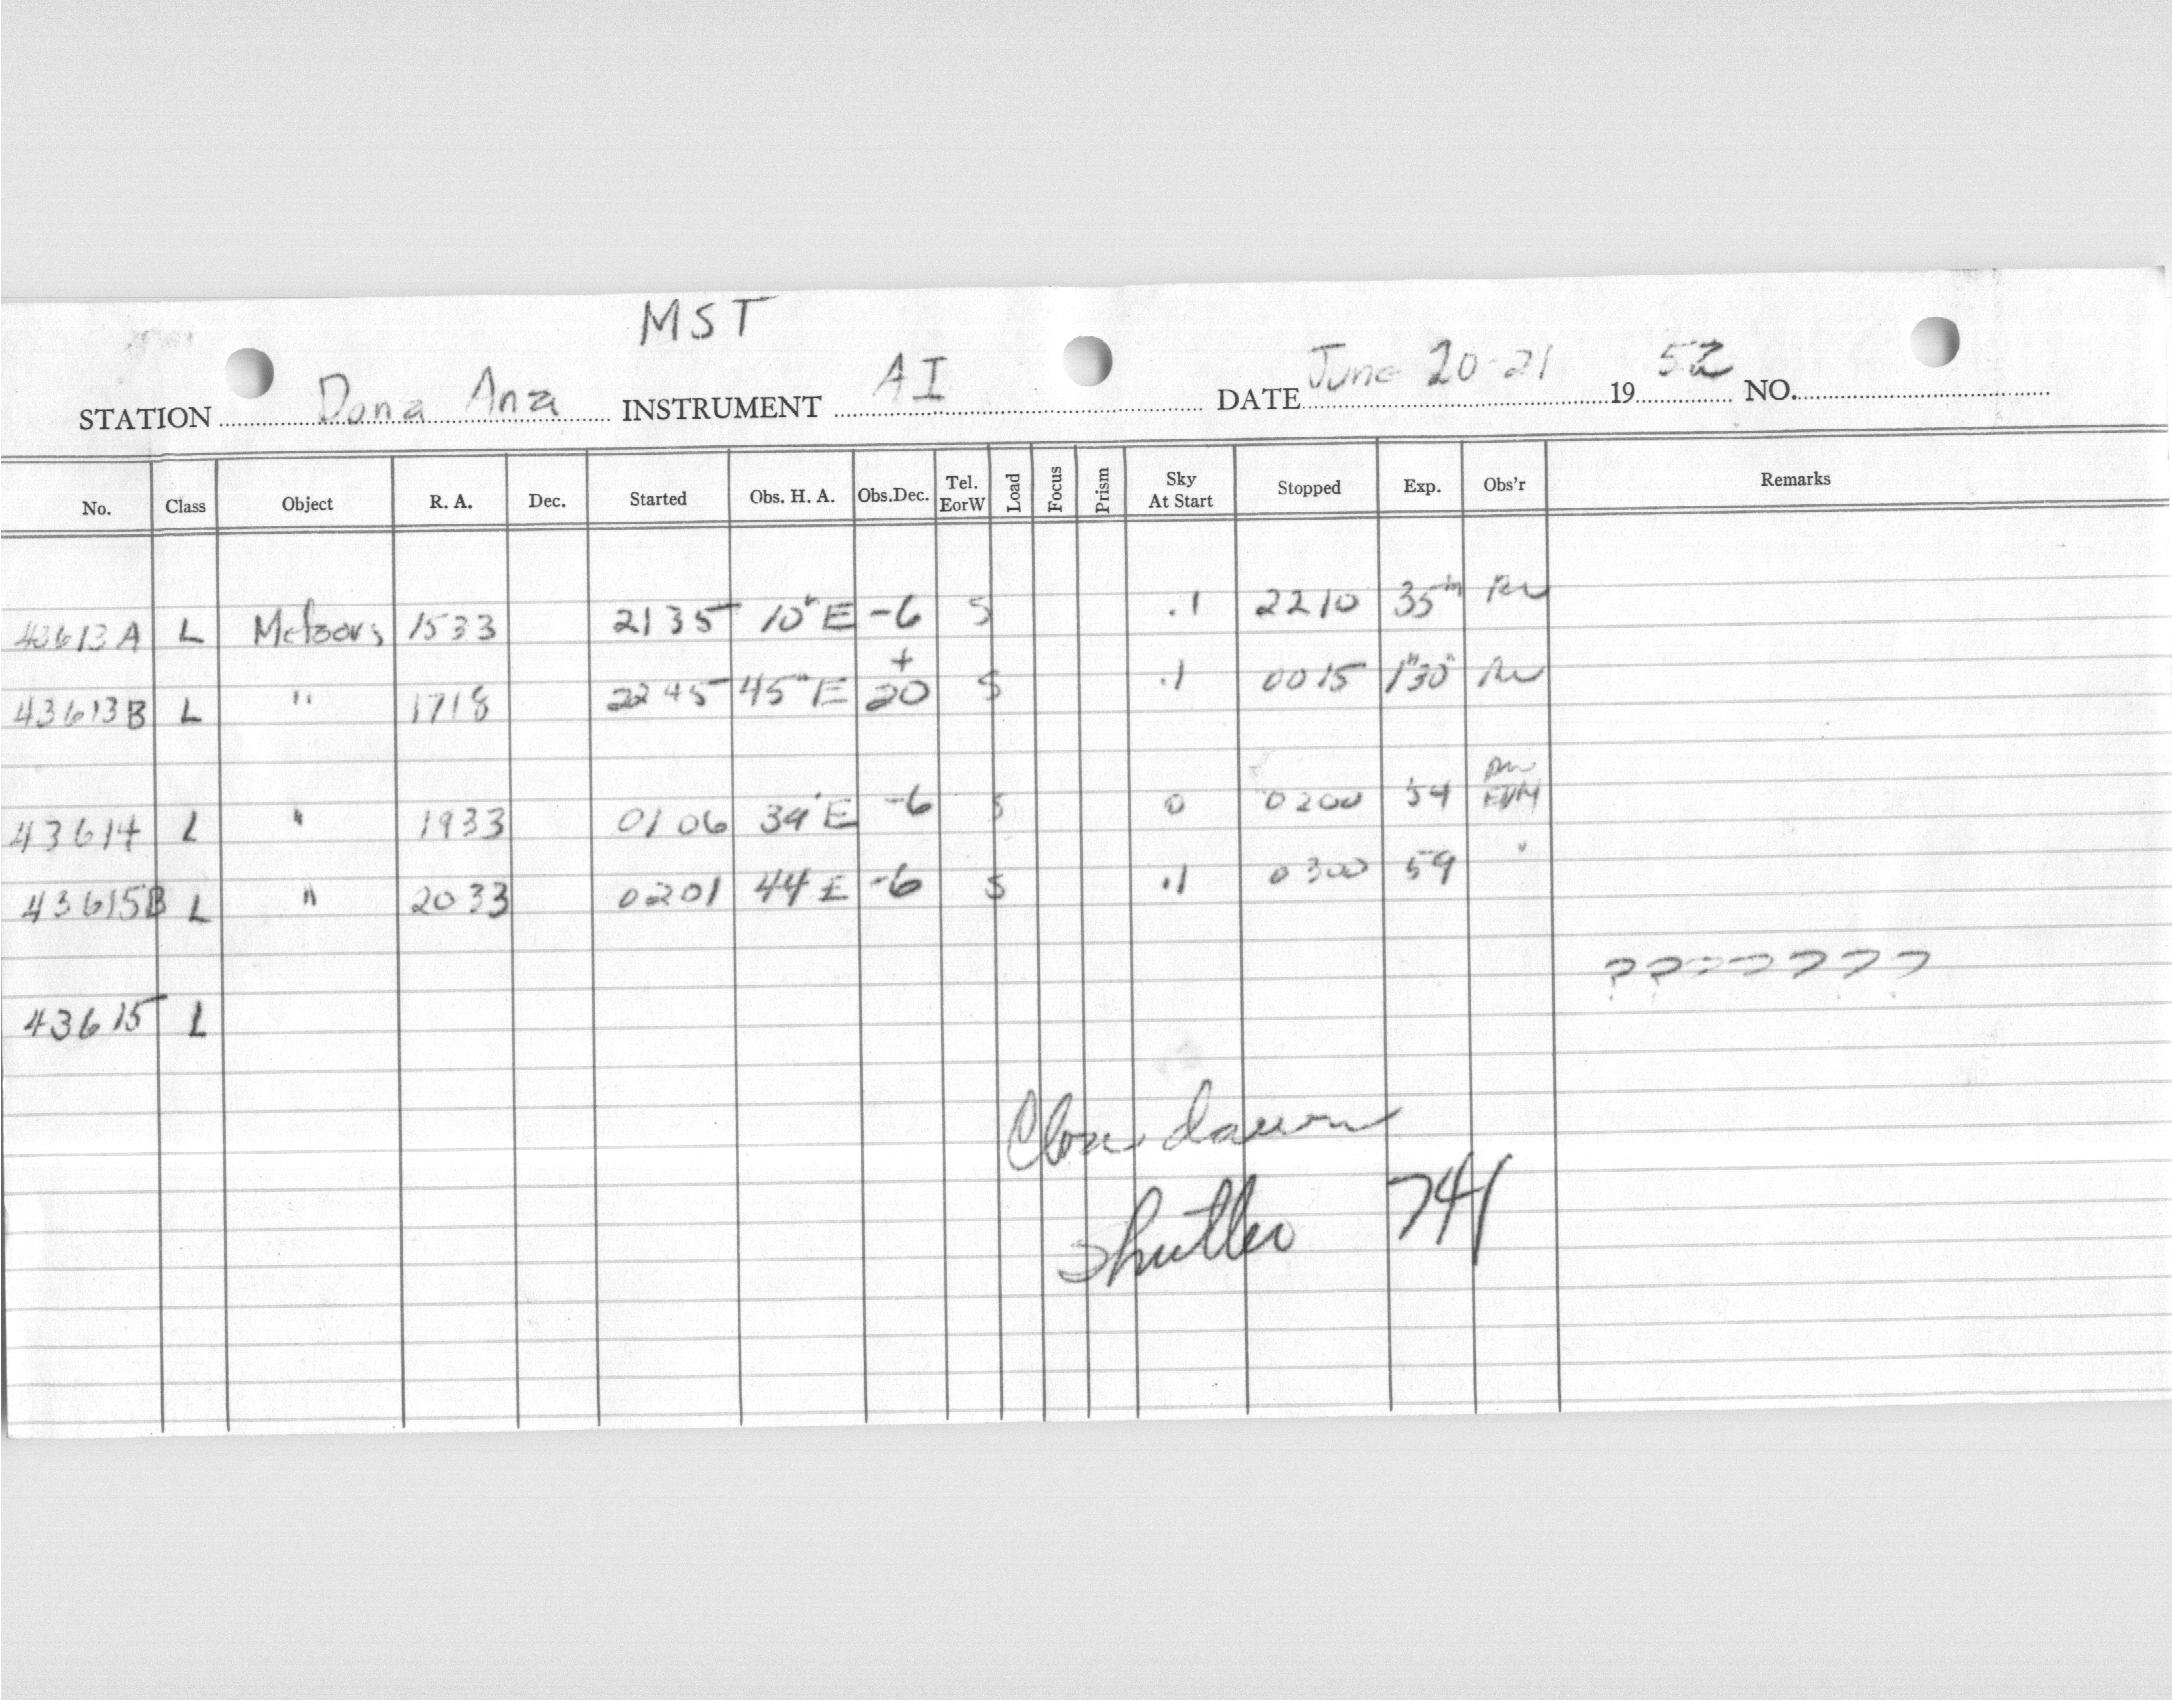 MST
STATION Dona Ana INSTRUMENT AI DATE June 20-21 1952 NO.
No. Class Object R. A. Dec. Started Obs. H. A. Obs.Dec. Tel. EorW Load Focus Prism Sky At Start Stopped Exp. Obs'r Remarks
43613A L Meteors 1533 2135 10m E -6 S .1 2210 35m
43613B L " 1718 2245 45m E +20 S .1 0015 1h30m
43614 L " 1933 0106 39 E -6 S 0 0200 54
43615B L " 2033 0201 44 E -6 S .1 0300 59 "
???????
43615 L
Close down
Shutter 741